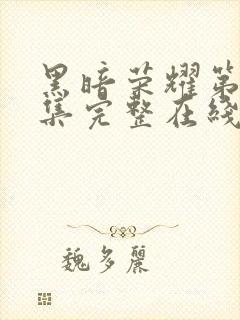 黑暗荣耀第
集完整在线
魏多麗